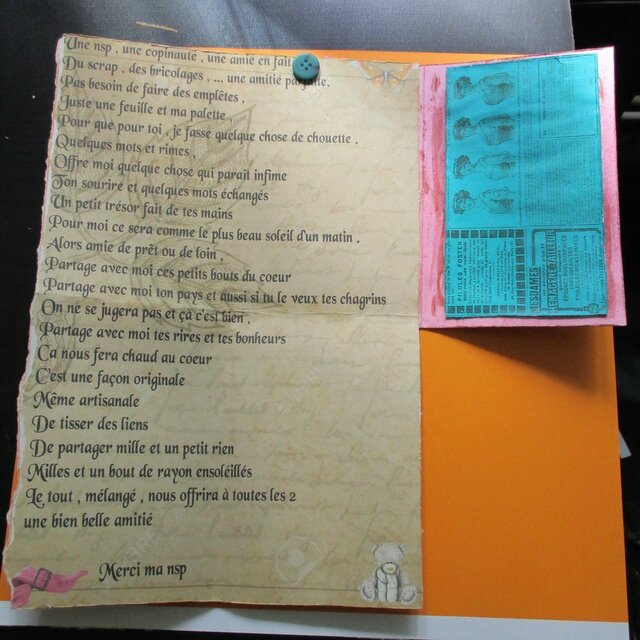 Une nsp , une copinaute , une amie en fait
Du scrap , des bricolages , ... une amitié parfaite.
Pas besoin de faire des emplêtes ,
Juste une feuille et ma palette ,
Pour que pour toi , je fasse quelque chose de chouette .
Quelques mots et rimes ,
Offre moi quelque chose qui paraît infime
Ton sourire et quelques mots échangés
Un petit trésor fait de tes mains
Pour moi ce sera comme le plus beau soleil d'un matin .
Alors amie de prêt ou de loin ,
Partage avec moi ces petits bouts du coeur
Partage avec moi ton pays et aussi si tu le veux tes chagrins
On ne se jugera pas et çà c'est bien ,
Partage avec moi tes rires et tes bonheurs
Ca nous fera chaud au coeur
C'est une façon originale
Même artisanale
De tisser des liens
De partager mille et un petit rien
Milles et un bout de rayon ensoléillés
Le tout , mélangé , nous offrira à toutes les 2
une bien belle amitié
Merci ma nsp
PILULES FOSTER